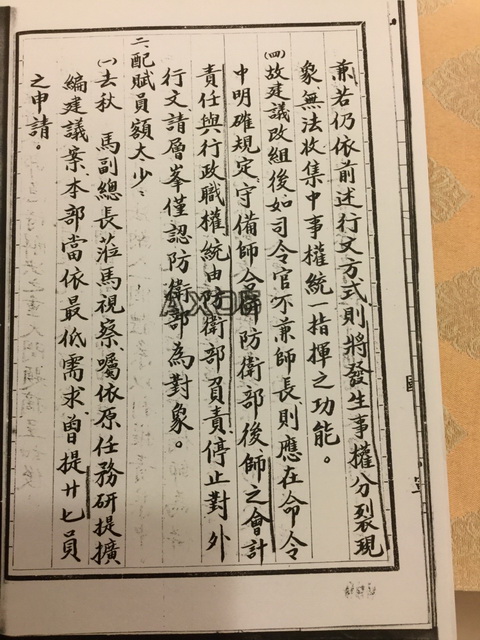 兼若仍依前述行文方式則將發生事權分裂現
象、無法收集中事權統一指揮之功能。
㈣故建議改組後如司令官不兼師長則應在命令
中明確規定、守備師合併防衛部後、師之會計
責任與行政職權統由防衛部負責、停止對外
行文請層峯僅認防衛部為對象。
二、配賦員額太少：
㈠去秋 馬副總長蒞馬視察、囑依原任務研提擴
編建議案、本部當依最低需求、曾提廿七員
之申請。